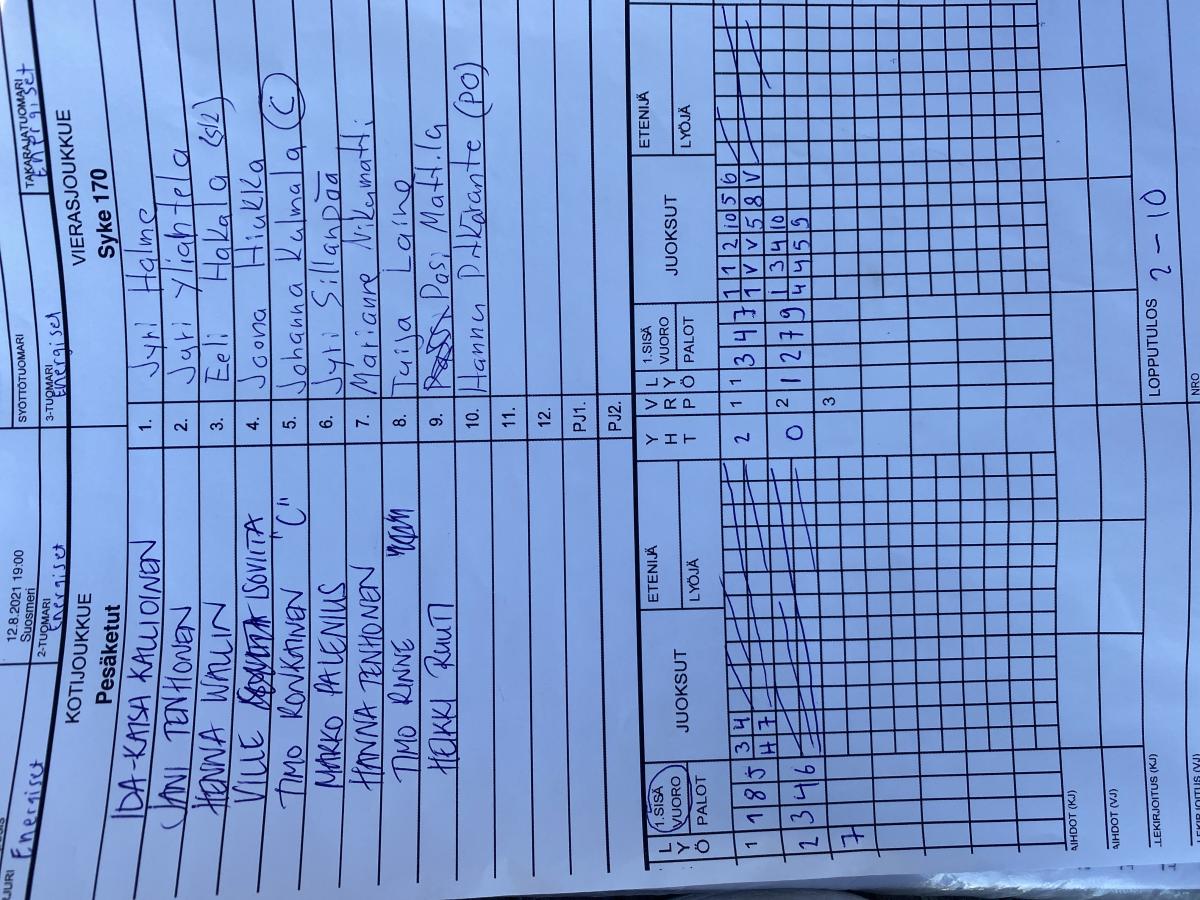 12.8.2021 19:00
Suosmeri
SYÖTTÖTUOMARI
TAKARAJATUOMARI
Energiset
Energiset
2-TUOMARI
Energiset
3-TUOMARI
Energiset
KOTIJOUKKUE
VIERASJOUKKUE
Pesäketut
Syke 170
IDA-KAISA KALLIOINEN 1. Jyri Halme
JANI TENHONEN 2. Jari Yliahtela
HENNA WALLIN 3. Eeli Hakala (S12)
VILLE ISOVIITA 4. Joona Hiukka
TIMO RONKAINEN "C" 5. Johanna Kulmala (C)
MARKO PALENIUS 6. Jyri Sillanpää
HANNA TENHONEN 7. Marianne Nikumatti
TIMO RINNE 8. Tuija Laine
HEIKKI RUUTI 9. Pasi Mattila
10. Hannu Pitkäranta (PO)
11.
12.
PJ1.
PJ2.
LYÖ 1.SISÄ VUORO PALOT JUOKSUT ETENIJÄ LYÖJÄ YHT VRP LYÖ 1.SISÄ VUORO PALOT JUOKSUT ETENIJÄ LYÖJÄ
1 1 8 5 3 4 2 1 1 3 4 7 1 1 2 10 5 6
H 7 1 V V 5 8 V
2 3 4 6 0 2 2 1 2 7 9 1 3 4 10
4 4 5 9
7 3
AIHDOT (KJ)
AIHDOT (VJ)
LEKIRJOITUS (KJ)
LOPPUTULOS 2 - 10
LEKIRJOITUS (VJ)
NRO